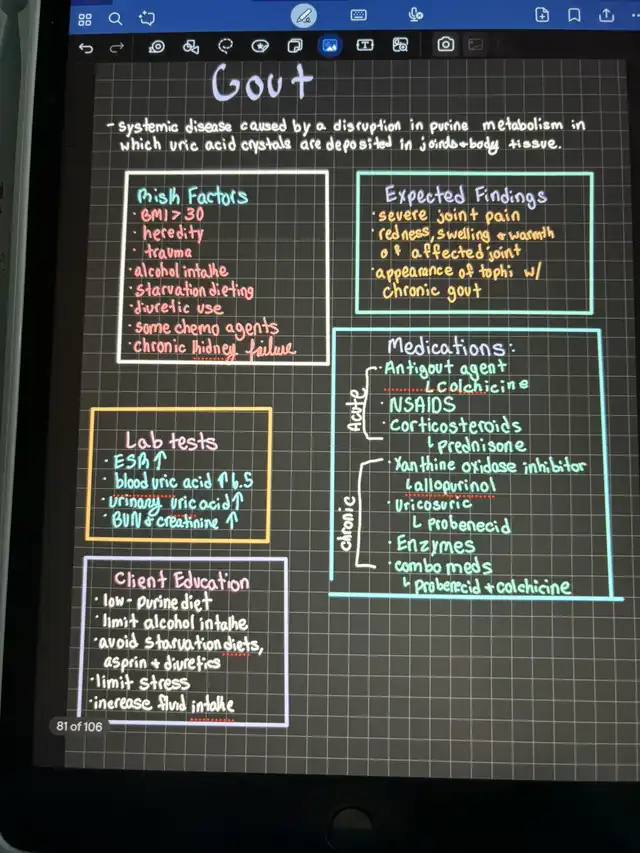 Gout
- systemic disease caused by a disruption in purine metabolism in
which uric acid crystals are deposited in joints + body tissue.
Risk Factors
· BMI > 30
· heredity
· trauma
· alcohol intake
· starvation dieting
· diuretic use
· some chemo agents
· chronic kidney failure
Expected Findings
· severe joint pain
· redness, swelling + warmth
of affected joint
· appearance of tophi w/
chronic gout
Medications:
Acute
· Antigout agent
↳ Colchicine
· NSAIDS
· corticosteroids
↳ prednisone
chronic
· Xanthine oxidase inhibitor
↳ allopurinol
· Uricosuric
↳ probenecid
· Enzymes
· combo meds
↳ probenecid + colchicine
Lab tests
· ESR ↑
· blood uric acid ↑ 6.5
· urinary uric acid ↑
· BUN + creatinine ↑
Client Education
· low-purine diet
· limit alcohol intake
· avoid starvation diets,
asprin + diuretics
· limit stress
· increase fluid intake
81 of 106